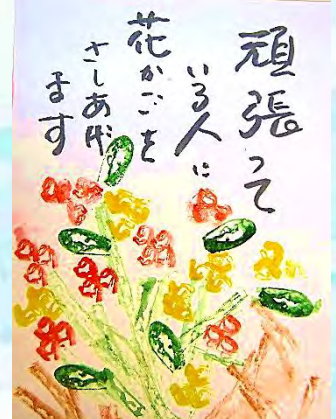 頑張って
いる人に
花かごを
さしあげ
ます